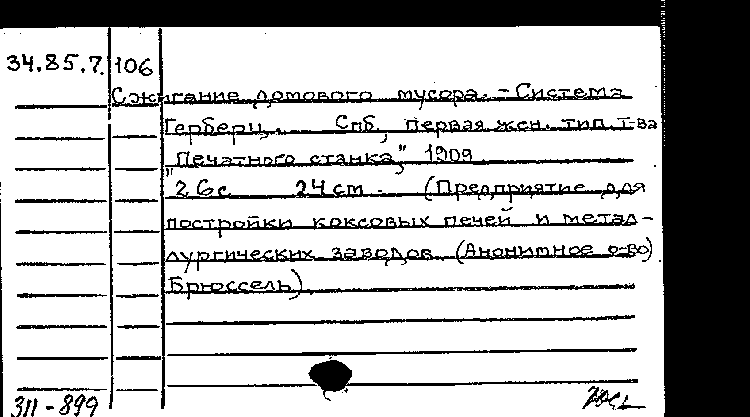 34.85.7. 106
Сжигание домового мусора. - Система
Герберц. Спб, первая жен. тип. т-ва
"Печатного станка," 1909.
26с 24cm. (Предприятие для
постройки коксовых печей и метал-
лургических заводов. (Анонимное о-во)
Брюссель)
311-899